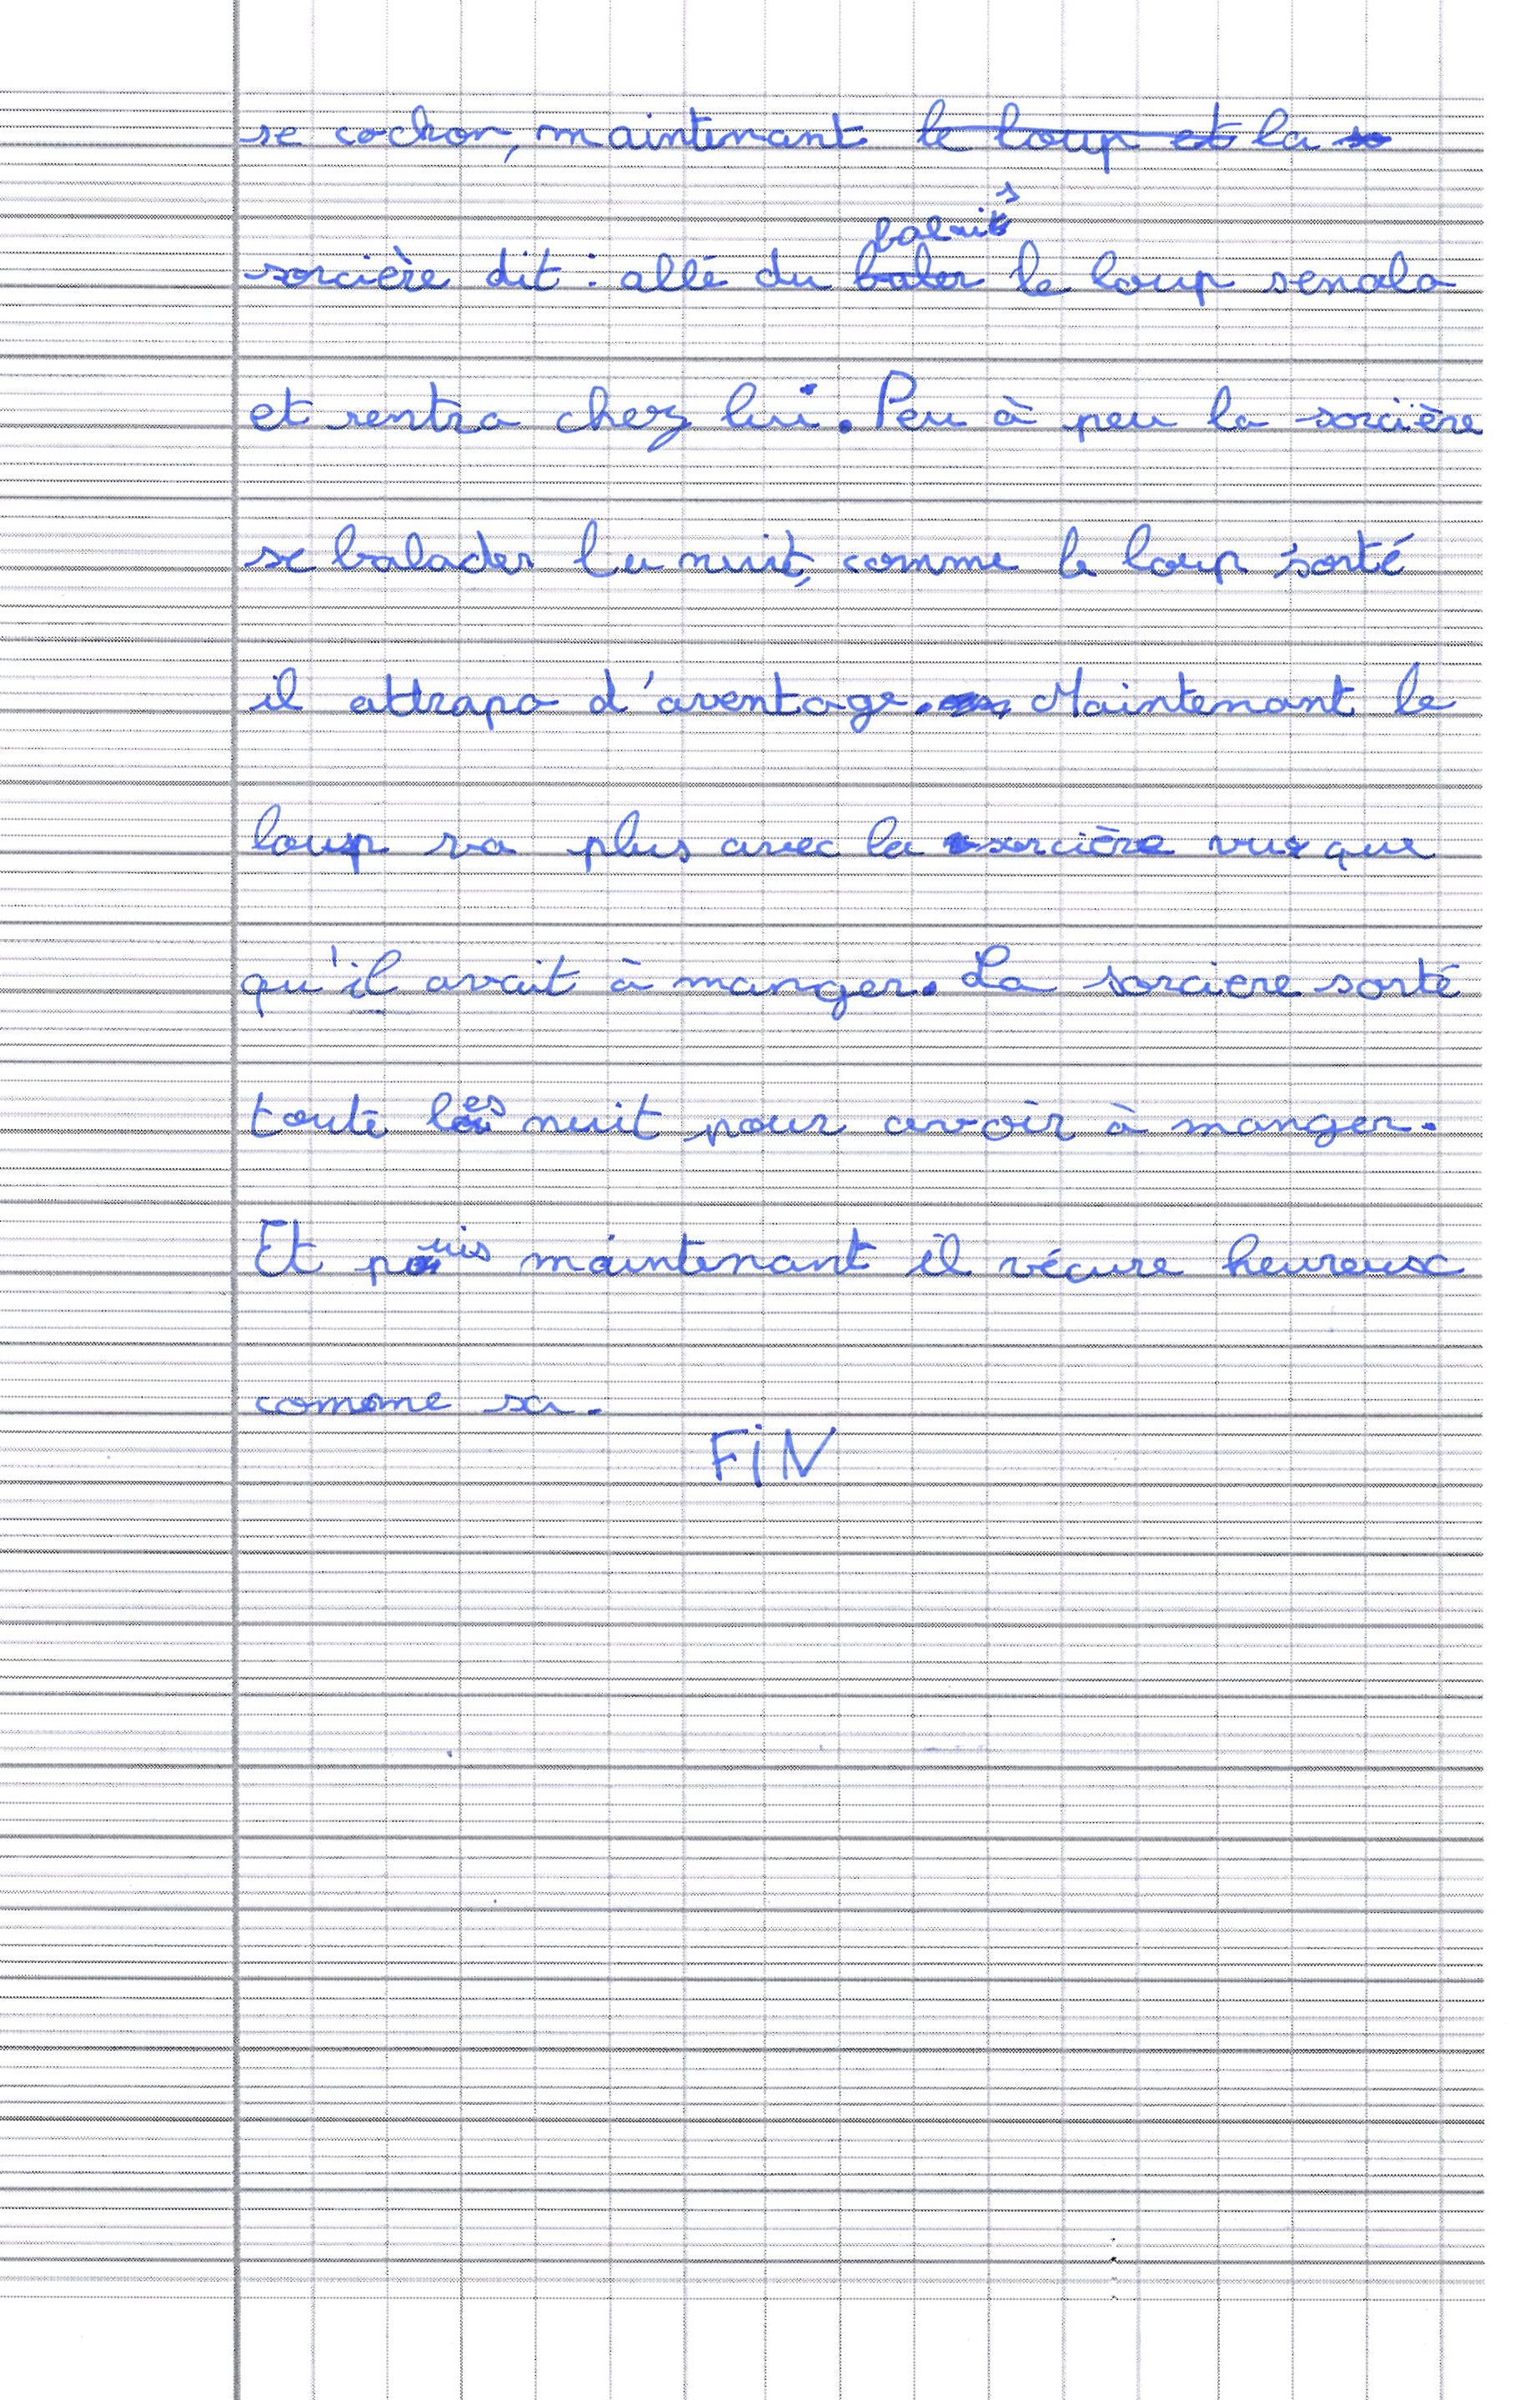 se cochon, maintenant le loup et la so
sorcière dit : allé du baler balaits le loup senala
et rentra chez lui. Peu à peu la sorcière
se balader la nuit, comme le loup sorté
il attrapa d'aventage. Maintenant le
loup va plus avec la sorcière vus que
qu'il avait à manger. La sorciere sorté
toute les nuit pour avoir à manger.
Et puis maintenant il vécure heureux
comme sa.
FiN